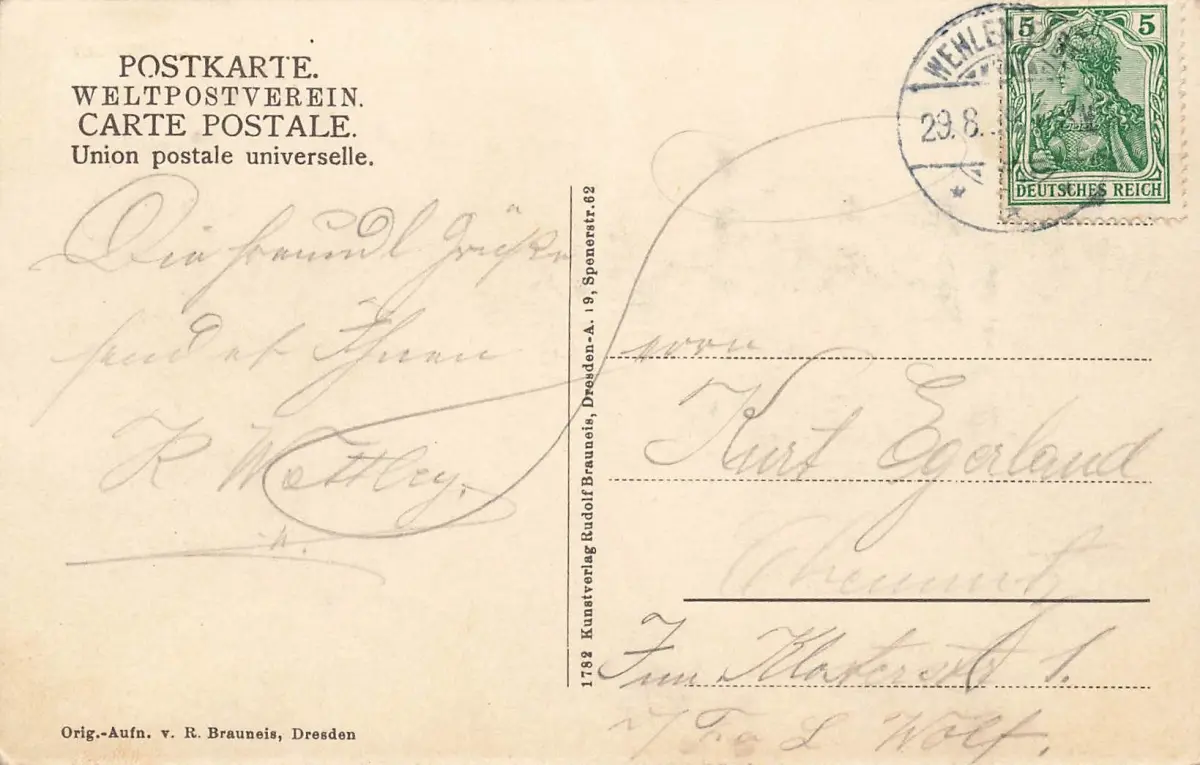 POSTKARTE.
WELTPOSTVEREIN.
CARTE POSTALE.
Union postale universelle.
WEHLEN
29.8.
5 5
DEUTSCHES REICH
Die freundl Grüße
sendet Ihnen
K
1782 Kunstverlag Rudolf Brauneis, Dresden-A. 19, Spenerstr. 62
Herrn
Kurt Egerland
Chemnitz
Klosterstr 1.
Fa L Wolf.
Orig.-Aufn. v. R. Brauneis, Dresden